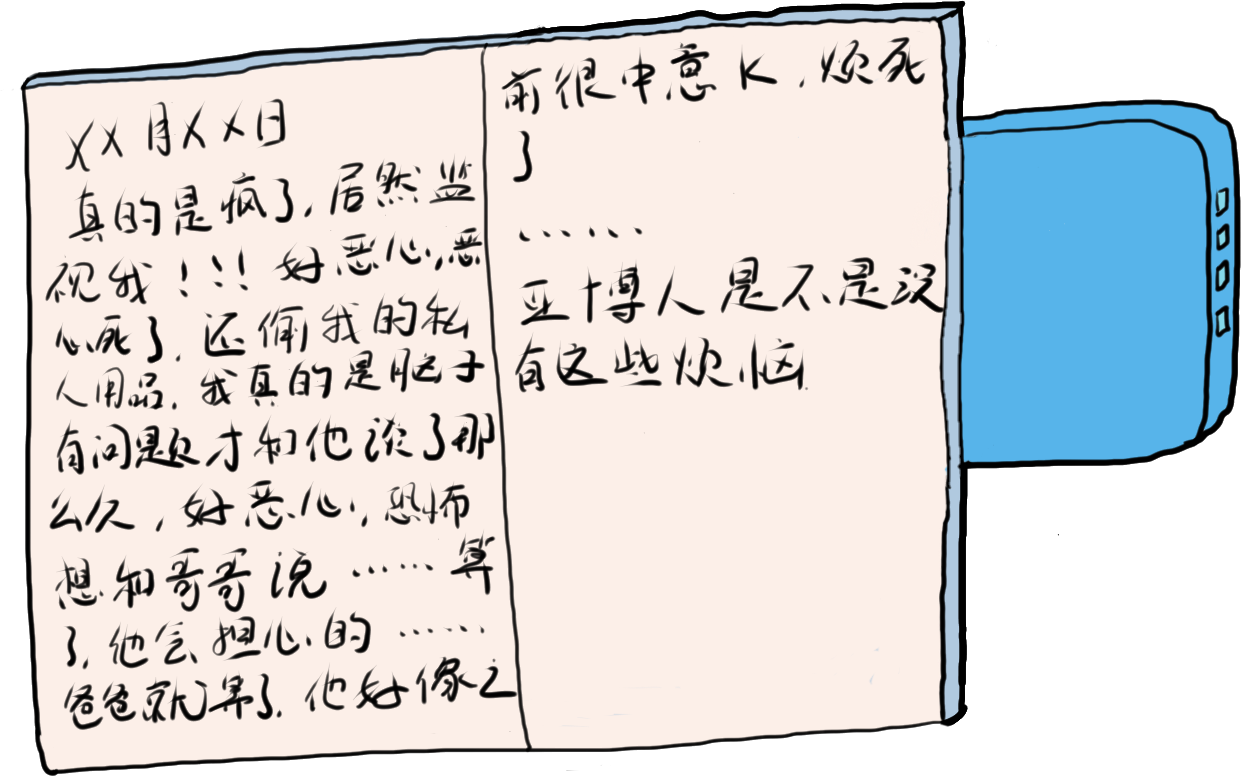 XX月XX日
真的是疯了，居然监
视我！！！好恶心，恶
心死了，还偷我的私
人用品，我真的是脑子
有问题才和他谈了那
么久，好恶心，恐怖
想和哥哥说……算
了，他会担心的……
爸爸就算了，他好像之
前很中意K，烦死
了
……
亚博人是不是没
有这些烦恼